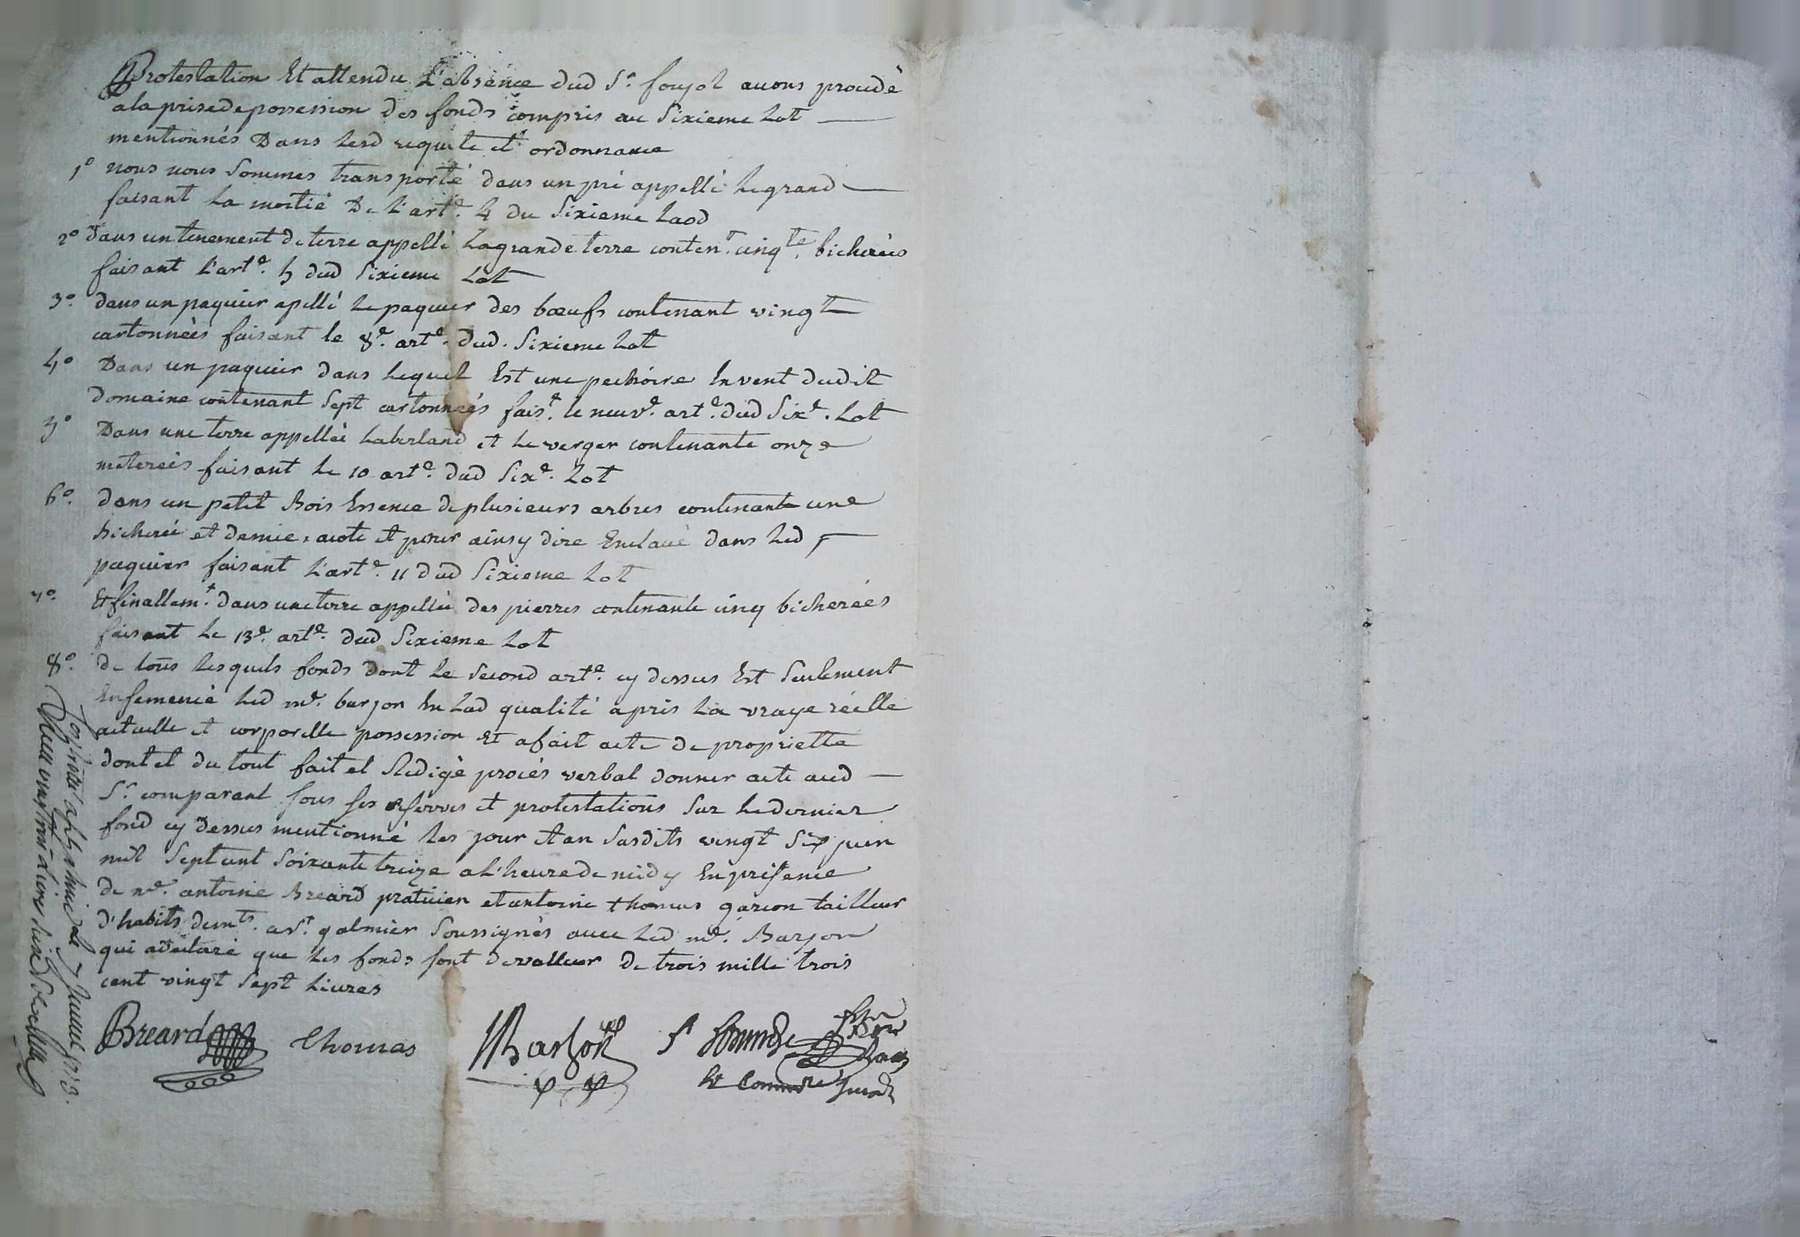 Protestation Et attendu L'absence dud Sr. foujol avons procedé
a la prise de possession des fonds compris au Sixieme Lot
mentionnés Dans Lesd requete et ordonnance
1° nous nous Sommes transporté dans un pré appellé Le grand
faisant La moitié De L'arte. 4 du Sixieme Laod
2° Dans un tenement de terre appellé La grande terre conten.t cinq.te bicherées
faisant L'arte. 5 dud Sixieme Lot
3° dans un paquier apellé Le paquier des bœufs contenant vingt
cartonnées faisant le 8e. arte. dud. Sixieme Lot
4° Dans un paquier dans Lequel Est une pechoire En vent dudit
domaine contenant Sept cartonnées fais.t le neuve. arte. dud Sixe. Lot
5° Dans une terre appellée Laberland et Le verger contenante onze
meterées faisant Le 10 arte. dud Sixe. Lot
6° dans un petit Bois Essence de plusieurs arbres contenante une
bicherée et demie, acote et pour ainsy dire Enclavé dans Led
paquier faisant L'arte. 11 dud Sixieme Lot
7° Et finallem.t dans une terre appellée des pierres contenante cinq bicherées
faisant Le 13e. arte. dud Sixieme Lot
8° de tous Lesquels fonds dont Le Second arte. cy dessus Est Seulement
Ensemencé Led me. barjon En Lad qualité a pris La vraye réelle
actuelle et corporelle possession Et a fait acte de proprietté
dont et du tout fait et Redigé procés verbal donner acte aud
Sr. comparant sous ses reserves et protestations Sur Le dernier
fond cy Dessus mentionné Les jour et an Susdits vingt Six juin
mil Sept cent Soixante treize a L'heure de midy En presence
de me. antoine Breard praticien et antoine thomas garcon tailleur
d'habits dem.ts a St. galmier Soussignés avec Led me. Barjon
qui a declaré que Les fonds sont de valleur de trois mille trois
cent vingt Sept Livres
Breard Thomas Barjon